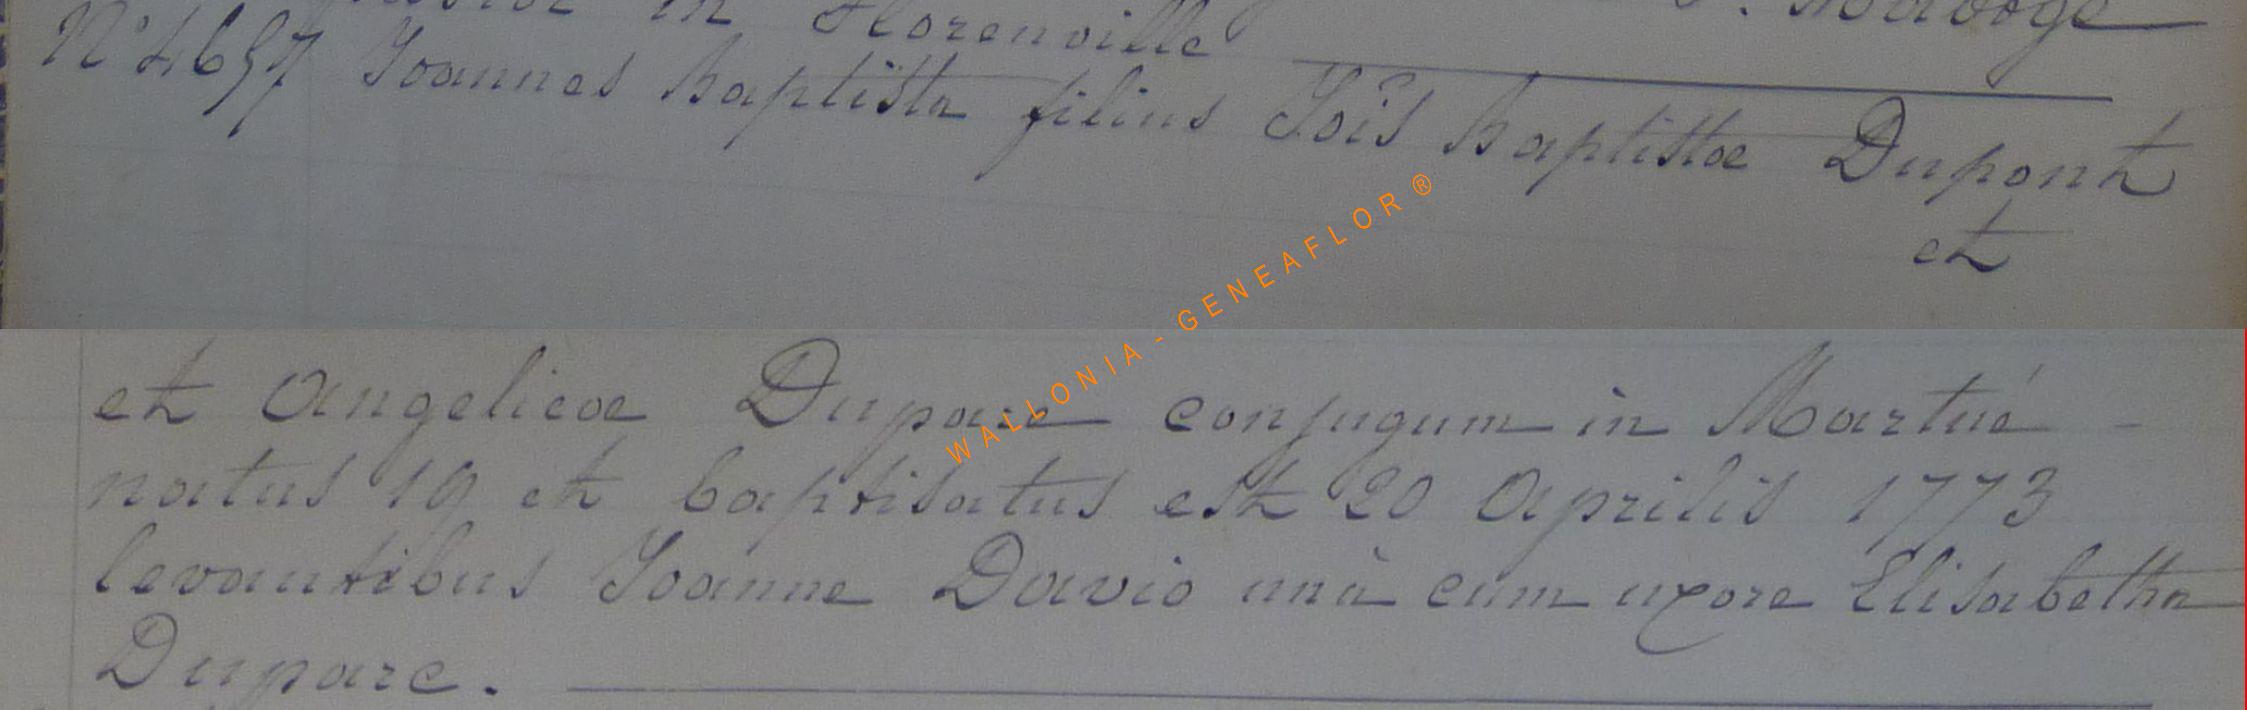 in Florenville
N° 4657 Joannes Baptista filius Jois Baptistæ Dupont
et
et Angelicæ Duparc conjugum in Martué -
natus 19 et baptisatus est 20 Aprilis 1773
levantibus Joanne Davio unà cum uxore Elisabetha
Duparc.
WALLONIA - GENEAFLOR ®